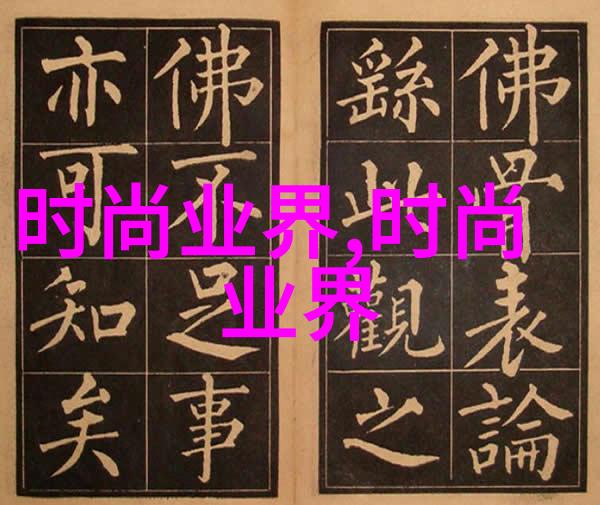 佛骨表論
繇此觀之
佛不足事
亦可知矣
时尚业界,时尚
业界